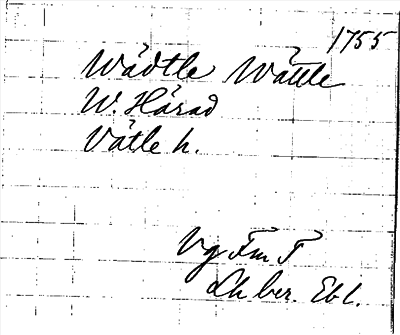 1755
Wädtle Wättle
W. Härad
Vätle h.
Vg Fm T
Lh ber. Ebl.